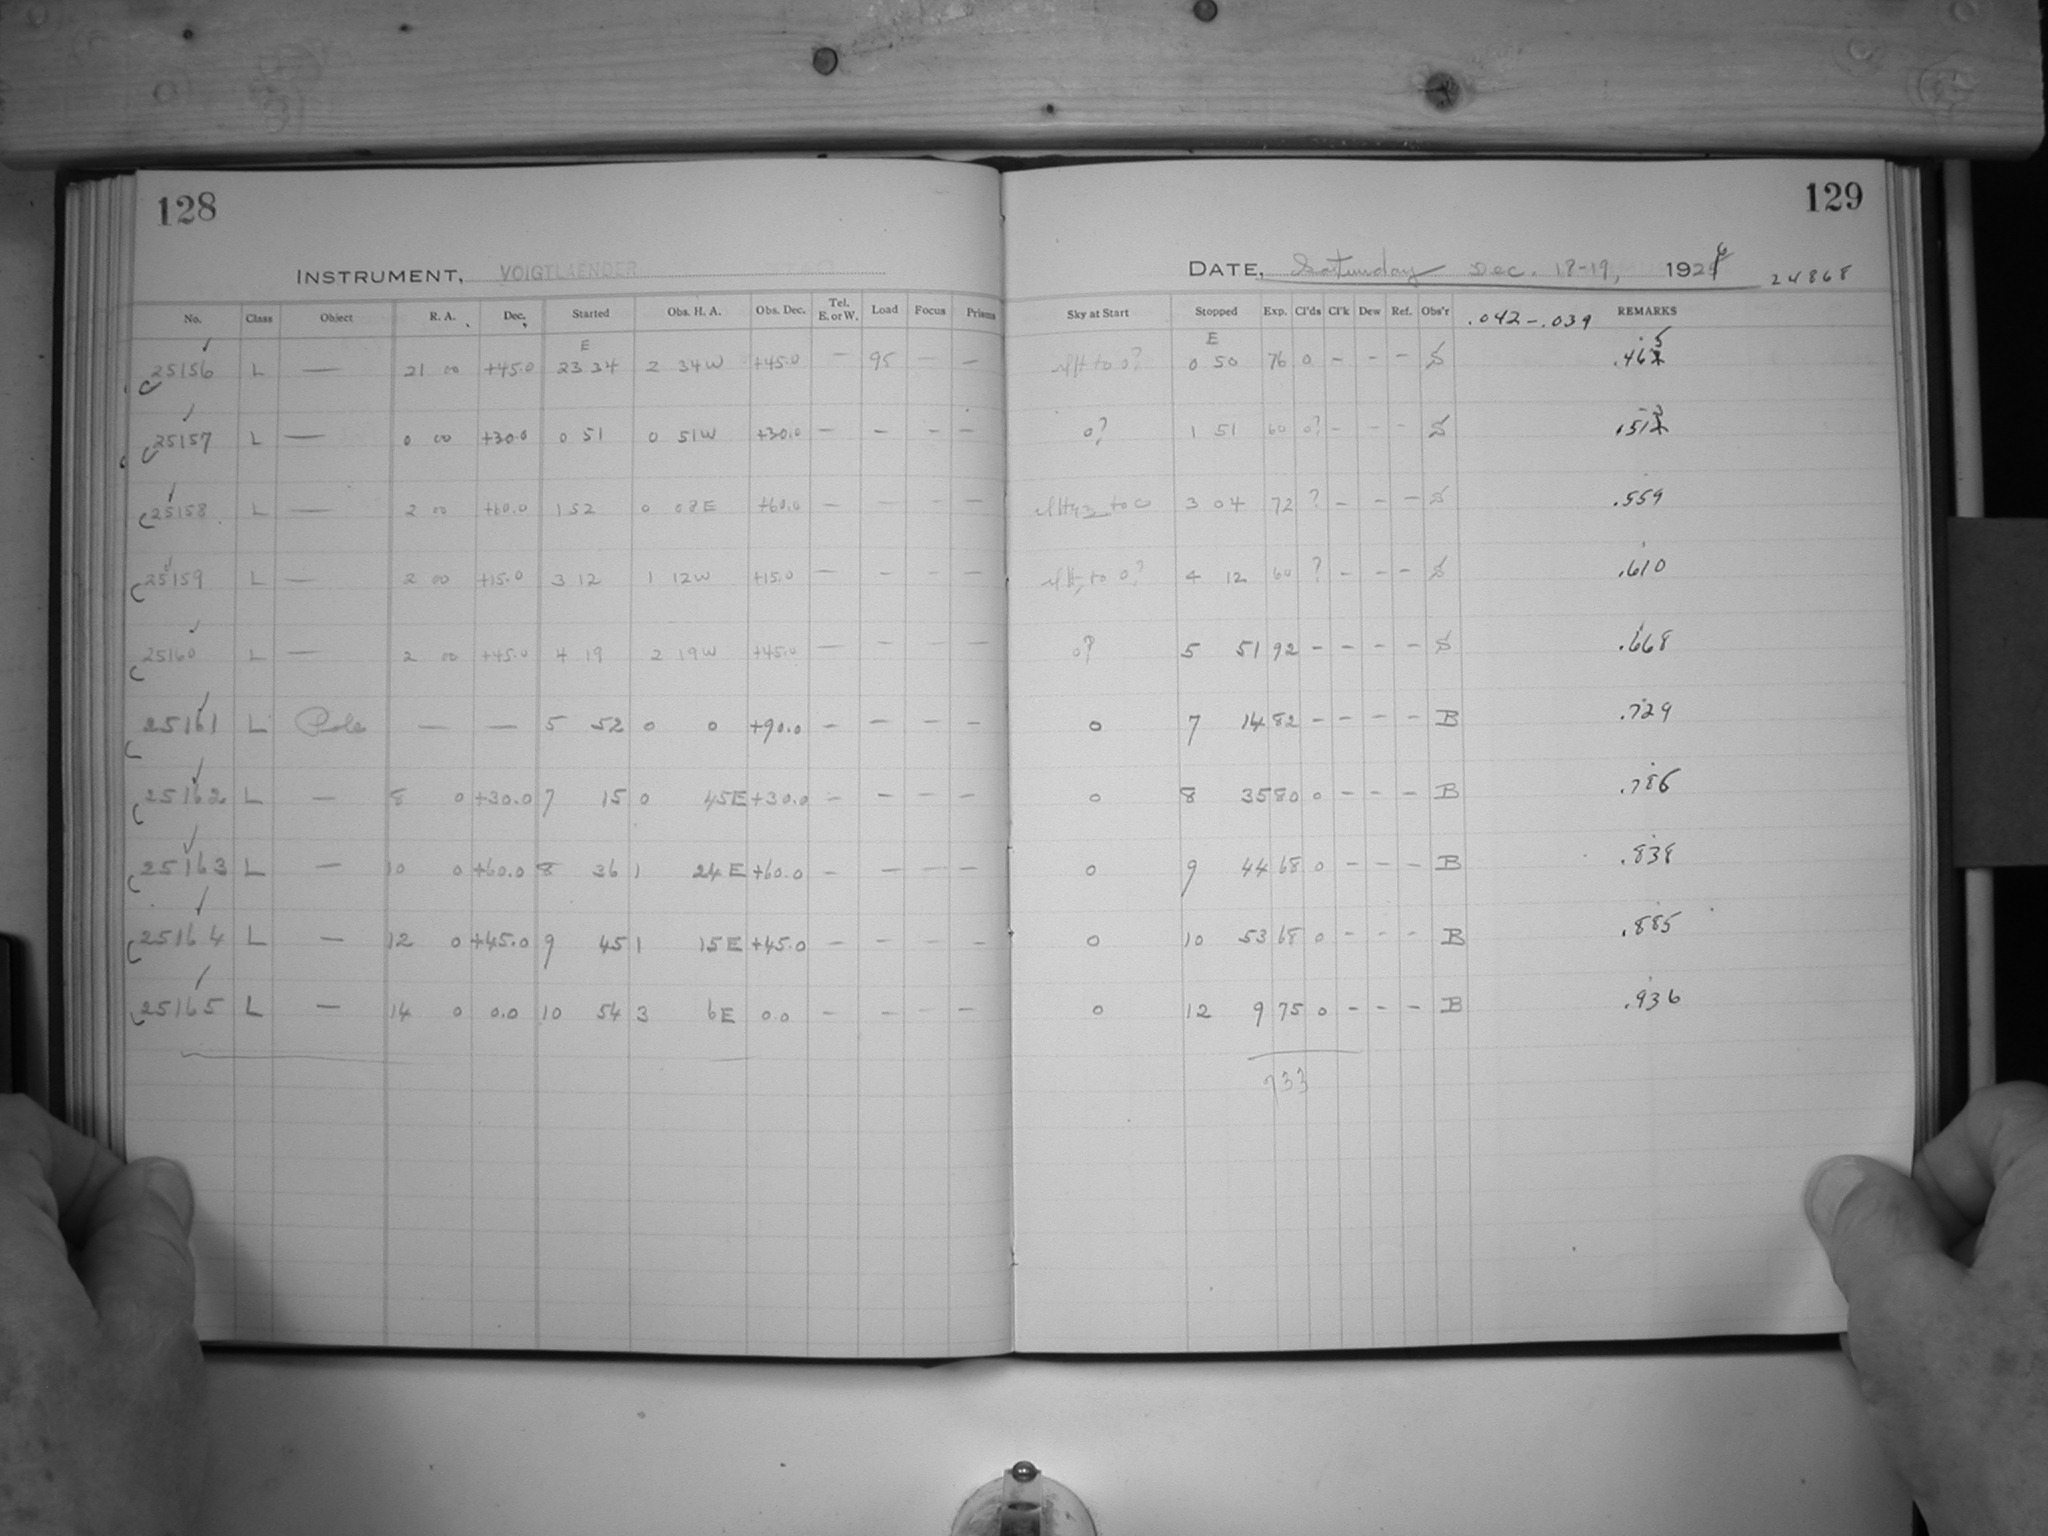 128
INSTRUMENT, VOIGTLAENDER
No. Class Object R. A. Dec. Started Obs. H. A. Obs. Dec. Tel. E. or W. Load Focus Prisms
E
25156 L — 21 00 +45.0 23 34 2 34W +45.0 — 95 — —
25157 L — 0 00 +30.0 0 51 0 51W +30.0 — - - -
25158 L — 2 00 +60.0 1 52 0 08E +60.0 — - - -
25159 L — 2 00 +15.0 3 12 1 12W +15.0 — - - -
25160 L — 2 00 +45.0 4 19 2 19W +45.0 — - - -
25161 L Pole — — 5 52 0 0 +90.0 - - - -
25162 L — 8 0 +30.0 7 15 0 45E +30.0 - - - -
25163 L — 10 0 +60.0 8 36 1 24E +60.0 - - - -
25164 L — 12 0 +45.0 9 45 1 15E +45.0 - - - -
25165 L — 14 0 0.0 10 54 3 6E 0.0 - - - -
129
DATE, Saturday Dec. 18-19, 1926 24868
Sky at Start Stopped Exp. Cl'ds Cl'k Dew Ref. Obs'r .042-.039 REMARKS
E
to 0? 0 50 76 0 - - - S .465
0? 1 51 60 0? - - - S .513
to 0 3 04 72 ? - - - S .559
to 0? 4 12 60 ? - - - S .610
0? 5 51 92 - - - - S .668
0 7 14 82 - - - - B .729
0 8 35 80 0 - - - B .786
0 9 44 68 0 - - - B .838
0 10 53 68 0 - - - B .885
0 12 9 75 0 - - - B .936
733